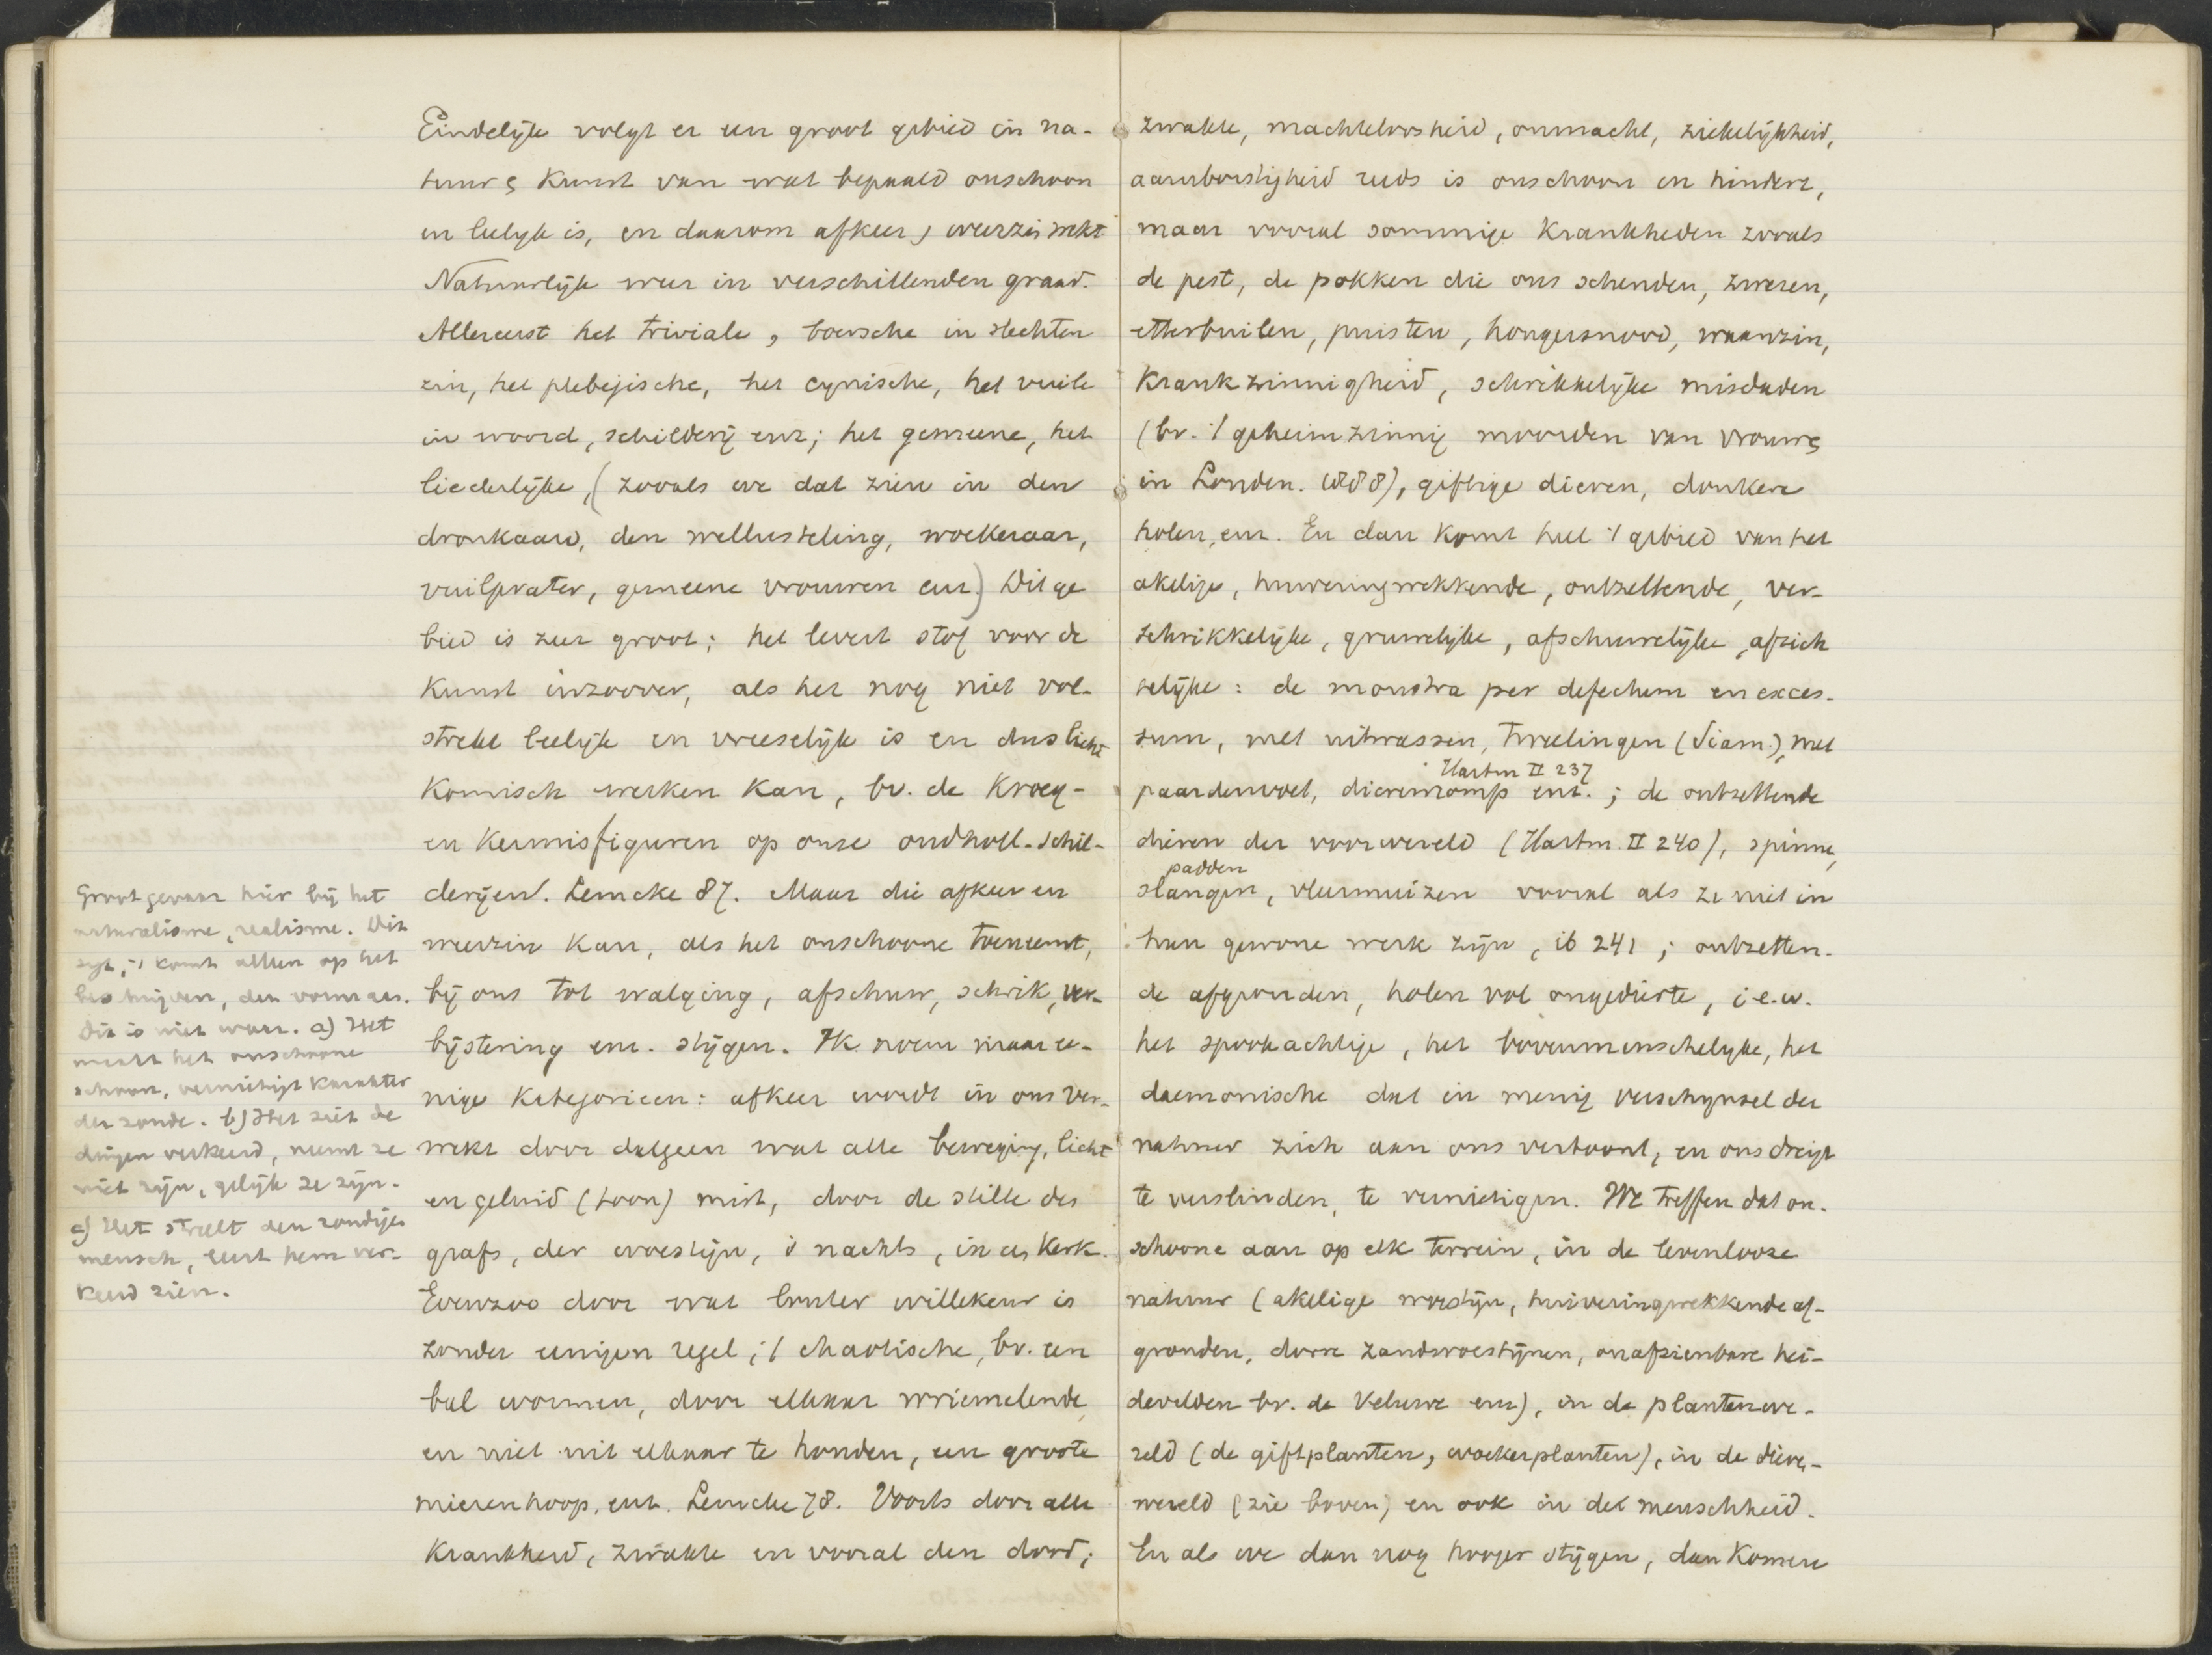 Eindelijk volgt er een groot gebied in na-
tuur en kunst van wat bepaald onschoon
en leelijk is, en daarom afkeer, weerzin wekt
Natuurlijk weer in verschillenden graad.
Allereerst het triviale, boersche in slechten
zin, het plebejische, het cynische, het vuile
in woord, schilderij enz; het gemeene, het
liederlijke, (zooals we dat zien in den
dronkaard, den wellusteling, woekeraar,
vuilprater, gemeene vrouwen enz.) Dit ge
bied is zeer groot; het levert stof voor de
Kunst inzoover, als het nog niet vol-
strekt leelijk en vreeselijk is en dus licht
Komisch werken kan, bv. de Kroeg-
en Kermisfiguren op onze oudholl. schil-
derijen. Lemcke 87. Maar die afkeer en
weerzin kan, als het onschoone toeneemt,
bij ons tot walging, afschuw, schrik, ver-
bijstering enz. stijgen. Ik noem maar ee-
nige Kategorieen: afkeer wordt in ons ver-
wekt door datgeen wat alle beweging, licht
en geluid (toon) mist, door de stilte des
grafs, der woestijn, 's nachts, in een Kerk.
Evenzoo door wat louter willekeur is
zonder eenigen regel; 't chaotische, bv. een
bal wormen, door elkaar wriemelende
en niet uit elkaar te houden, een groote
mierenhoop, enz. Lemcke 78. Voorts door alle
Krankheid, zwakte en vooral den dood;
Groot gevaar hier bij het
naturalisme, realisme. Dit
zegt, 't komt alleen op het
beschrijven, den vorm aan.
Dit is niet waar. a) Het
maakt het onschoone
schoon, vernietigt karakter
der zonde. b) Het ziet de
dingen verkeerd, neemt ze
niet zijn, gelijk ze zijn.
c) Het streelt den zondigen
mensch, leert hem ver-
keerd zien.
zwakte, machteloosheid, onmacht, ziekelijkheid,
aamborstigheid reeds is onschoon en hindert,
maar vooral sommige Krankheden zooals
de pest, de pokken die ons schenden, zweren,
etterbuilen, puisten, hongersnood, waanzin,
Krankzinnigheid, schrikkelijke misdaden
(bv. 't geheimzinnig moorden van vrouwen
in Londen. 1888), giftige dieren, donkere
holen, enz. En dan komt heel 't gebied van het
akelige, huiveringwekkende, ontzettende, ver-
schrikkelijke, gruwelijke, afschuwelijke, afzich
telijke: de monstra per defectum en exces-
sum, met uitwassen, tweelingen (Siam.), met
Hartm II 237
paardenvoet, dierenromp enz.; de ontzettende
dieren der voorwereld (Hartm. II 240), spinnen,
padden
slangen, vleermuizen vooral als ze niet in
hun gewone werk zijn, ib 241; ontzetten-
de afgronden, holen vol ongedierte, i.e.w.
het spookachtige, het bovenmenschelijke, het
daemonische dat in menig verschijnsel der
natuur zich aan ons vertoont, en ons dreigt
te verslinden, te vernietigen. We treffen dat on-
schoone aan op elk terrein, in de levenlooze
natuur (akelige woestijn, huiveringwekkende af-
gronden, dorre zandwoestijnen, onafzienbare hei-
develden bv. de Veluwe enz), in de plantenwe-
reld (de giftplanten, woekerplanten), in de dieren-
wereld (zie boven) en ook in de menschheid.
En als we dan nog hooger stijgen, dan komen